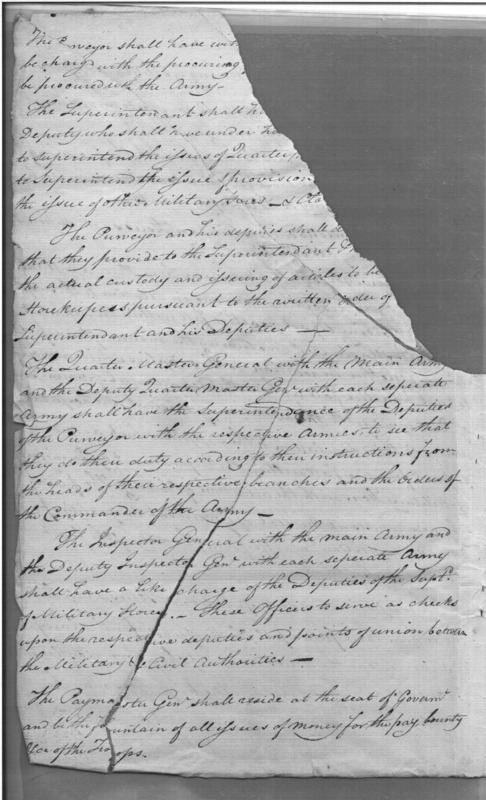 The P rveyor shall have wit
be charg with the procuring
be procured with the Army –
The Superintendant shall h
Deputy who shall have under h
to superintend the issues of Quarter
to Superintend the issue of provision
the issue of other Military Stores –
The Purveyor and his deputies shall d
that they provide to the Superintendant
the actual custody and issueing of articles to be
Storekeepers pursuant to the written order of
Superintendant and his Deputies –
The Quarter Master General with the Main Army
and the Deputy Quarter Master Genl. with each seperate
Army shall have the Superintendance of the Deputies
of the Purveyor with the respective Armies, to see that
they do their duty according to their instructions from
the heads of their respective branches and the orders of
the Commander of the Army –
The Inspector General with the main Army and
the Deputy Inspector Genl. with each seperate Army
shall have a like charge of the Deputies of the Supt.
of Military Stores. – These Officers to serve as checks
upon the respective deputies and points of union between
the Military & Civil Authorities –
The Paymaster Genl. shall reside at the seat of Governt.
and be the fountain of all issues of money for the pay bounty
&ca of the Troops.